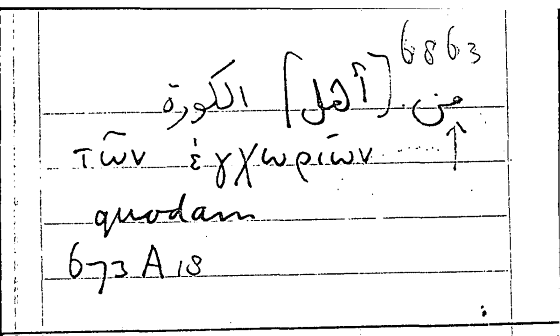 6863
من [أهل] الكورة
τῶν ἐγχωρίων ..... ↑
quodam
673 A 18